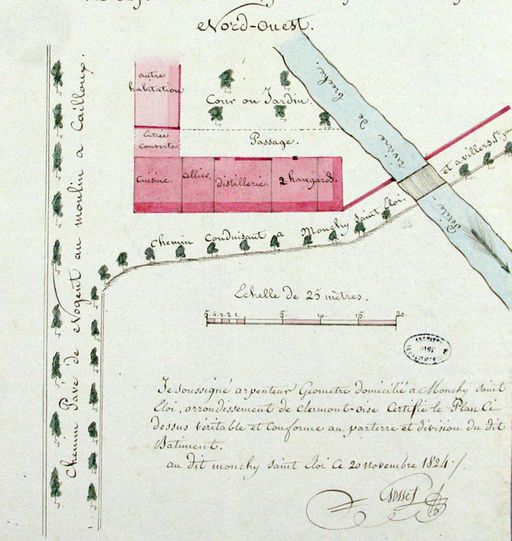 Nord-Ouest.
autre
habitation
Cour ou Jardin.
Entrée
couverte
Passage.
Cuisine.
Cellier.
distillerie.
2 hangards.
rivière de brèche.
Petite
et avillers St.
Chemin Conduisant a Monchy Saint Eloi.
Chemin Pavé de Nogent au moulin a Cailloux.
Echelle de 25 mètres.
5 4 3 2 1 5 10 15 20
Je soussigné arpenteur Geometre domicilié a Monchy saint
Eloi, arrondissement de Clermont-oise Certifie le Plan Ci
dessus véritable et Conforme au parterre et division du dit
Batiment.
au dit monchy saint Eloi Ce 20 novembre 1824 /.